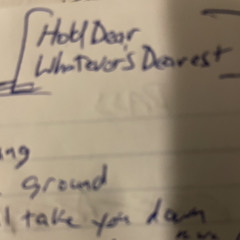 Hold Dear
Whatever's Dearest
ing
ground
I take you down